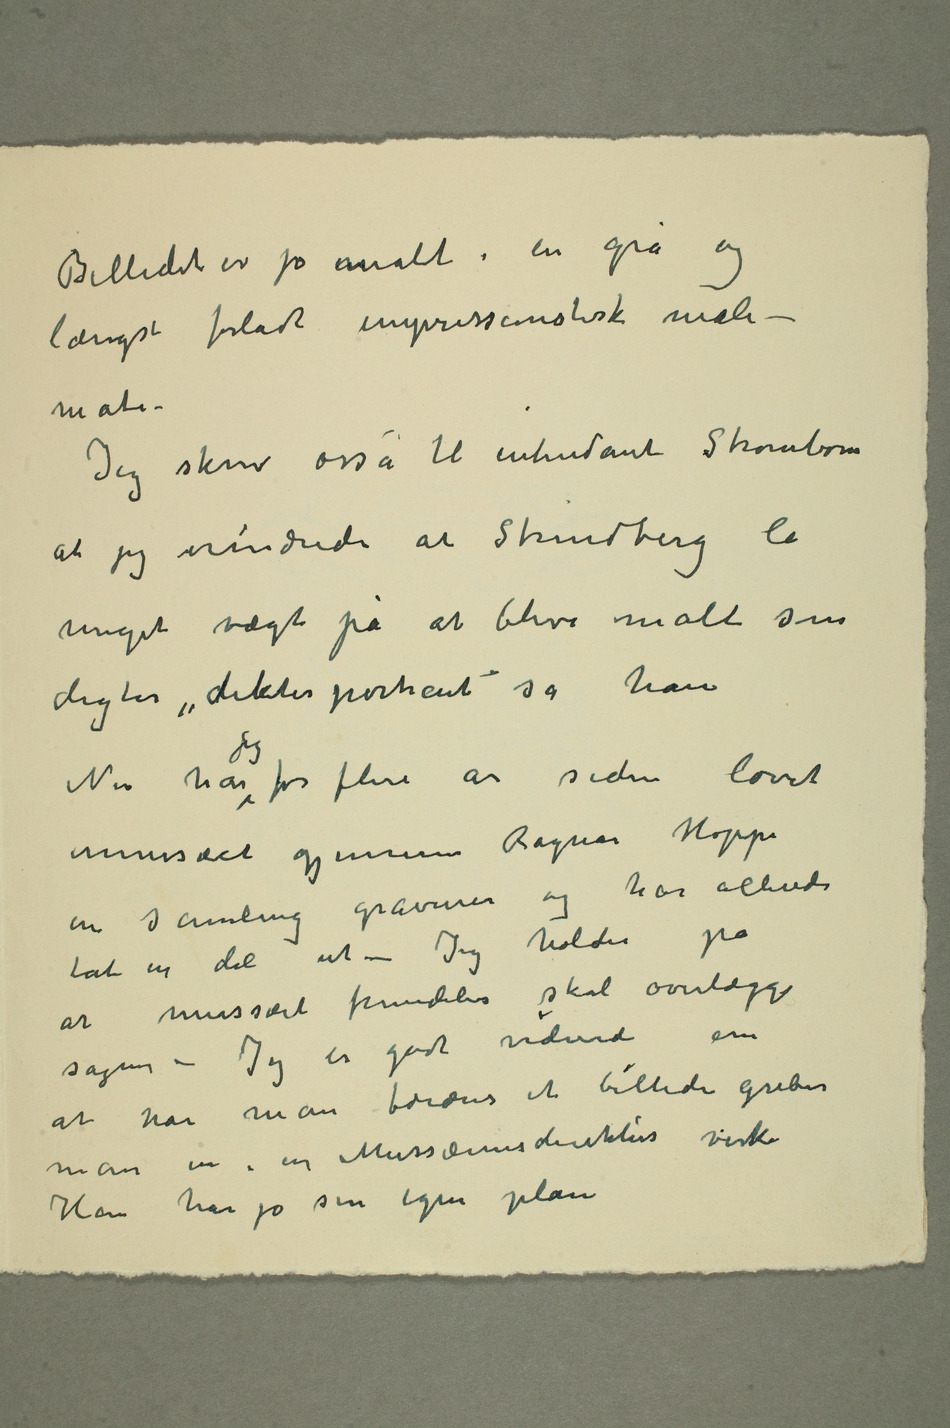 Billedet er jo malt i en grå og
længst forladt impressionistisk male–
måte–
Jeg skrev osså til intendant Strømbom
at jeg erindrede at Strindberg la
meget vægt på at blive malt som
digter „dikterportrent“ sa han
Nu har jeg for flere år siden lovet
mussæet gjennem Ragnar Hoppe
en samling gravurer og har allerede
tat en del ut – Jeg holder på
at mussæet fremdeles skal overlægge
sagen – Jeg er godt vidende om
at når man forærer et billede griber
man in i en Mussæumsdirektørs virke
Han har jo sin egen plan